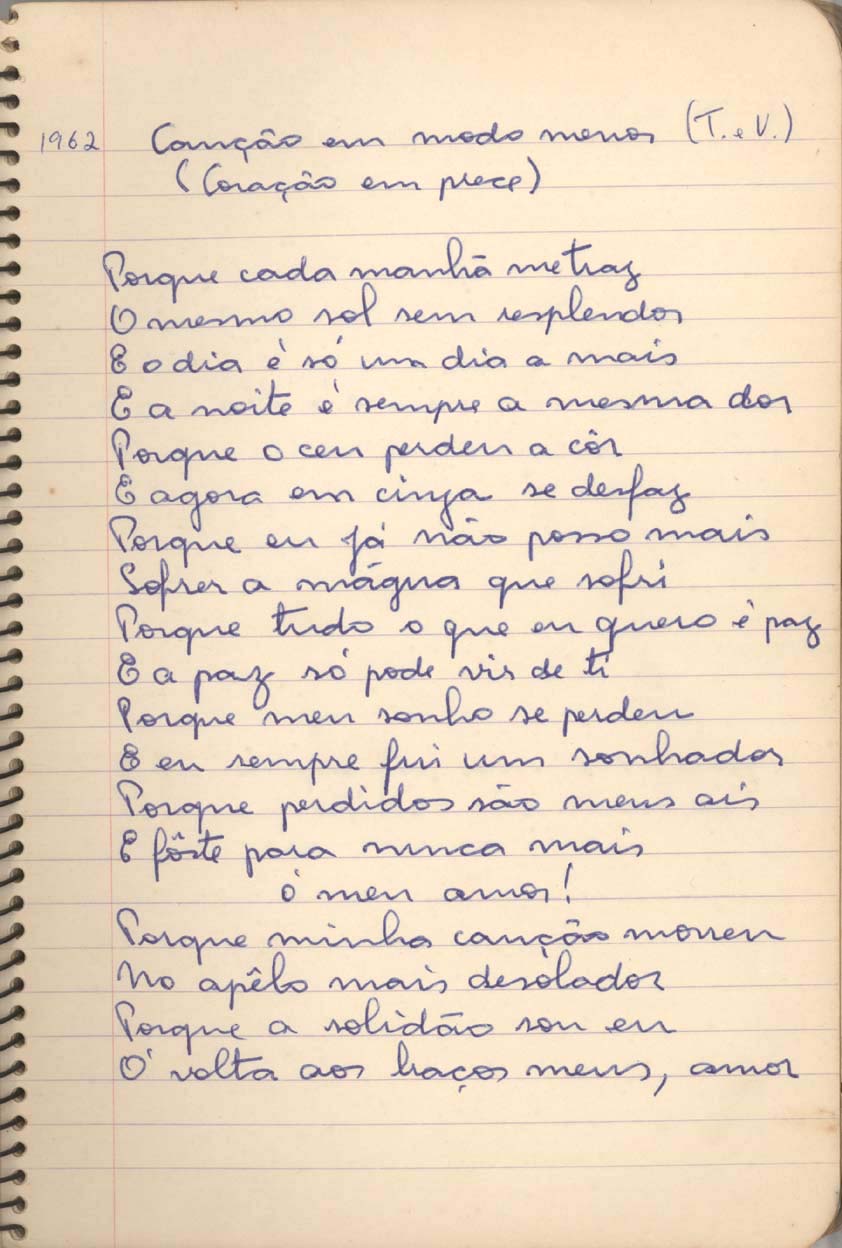 1962 Canção em modo menor (T. e V.)
(Coração em prece)
Porque cada manhã me traz
O mesmo sol sem resplendor
E o dia é só um dia a mais
E a noite é sempre a mesma dor
Porque o ceu perdeu a côr
E agora em cinza se desfaz
Porque eu já não posso mais
Sofrer a mágua que sofri
Porque tudo o que eu quero é paz
E a paz só pode vir de ti
Porque meu sonho se perdeu
E eu sempre fui um sonhador
Porque perdidos são meus ais
E fôste para nunca mais
Ó meu amor!
Porque minha canção morreu
No apêlo mais desolador
Porque a solidão sou eu
Ó volta aos braços meus, amor